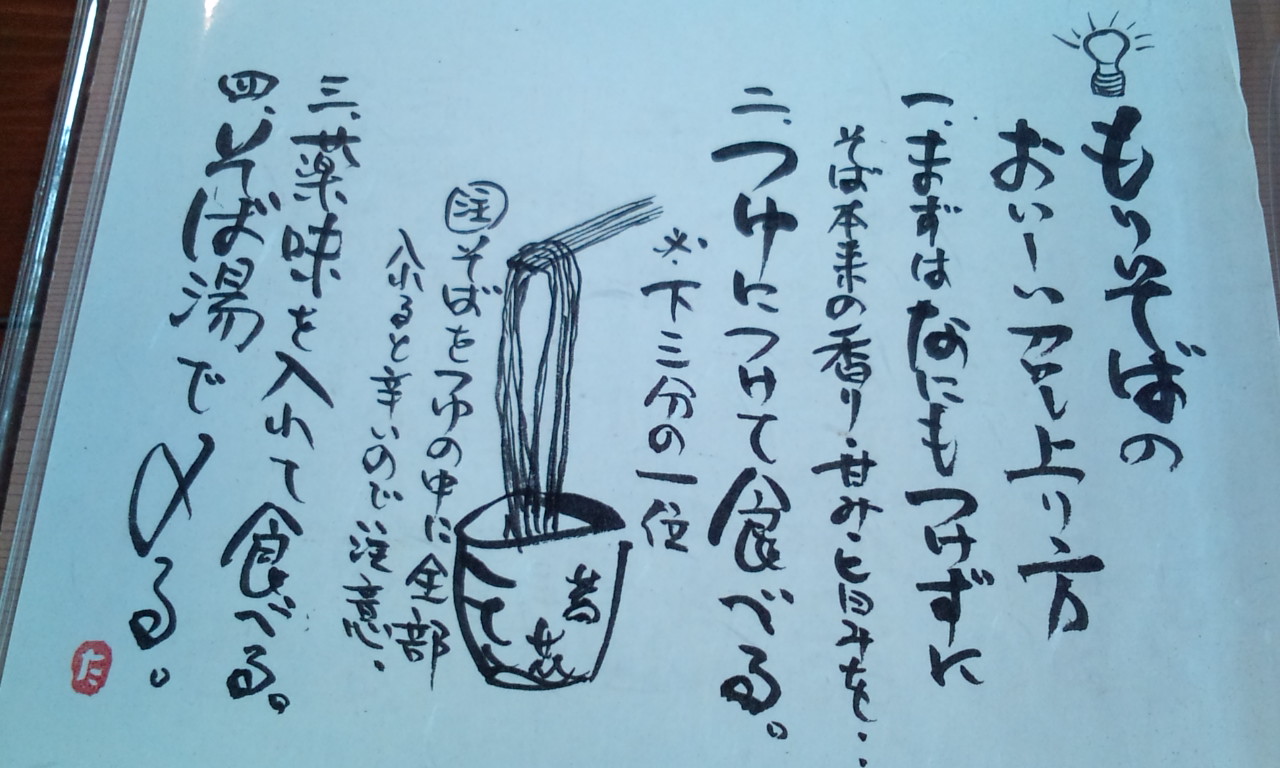 もりそばの
おいしい召し上り方
一、まずはなにもつけずに
そば本来の香り・甘み・旨みを・・
二、つゆにつけて食べる。
※下三分の一位
注 そばをつゆの中に全部
入れると辛いので注意。
三、薬味を入れて食べる。
四、そば湯で〆る。
た